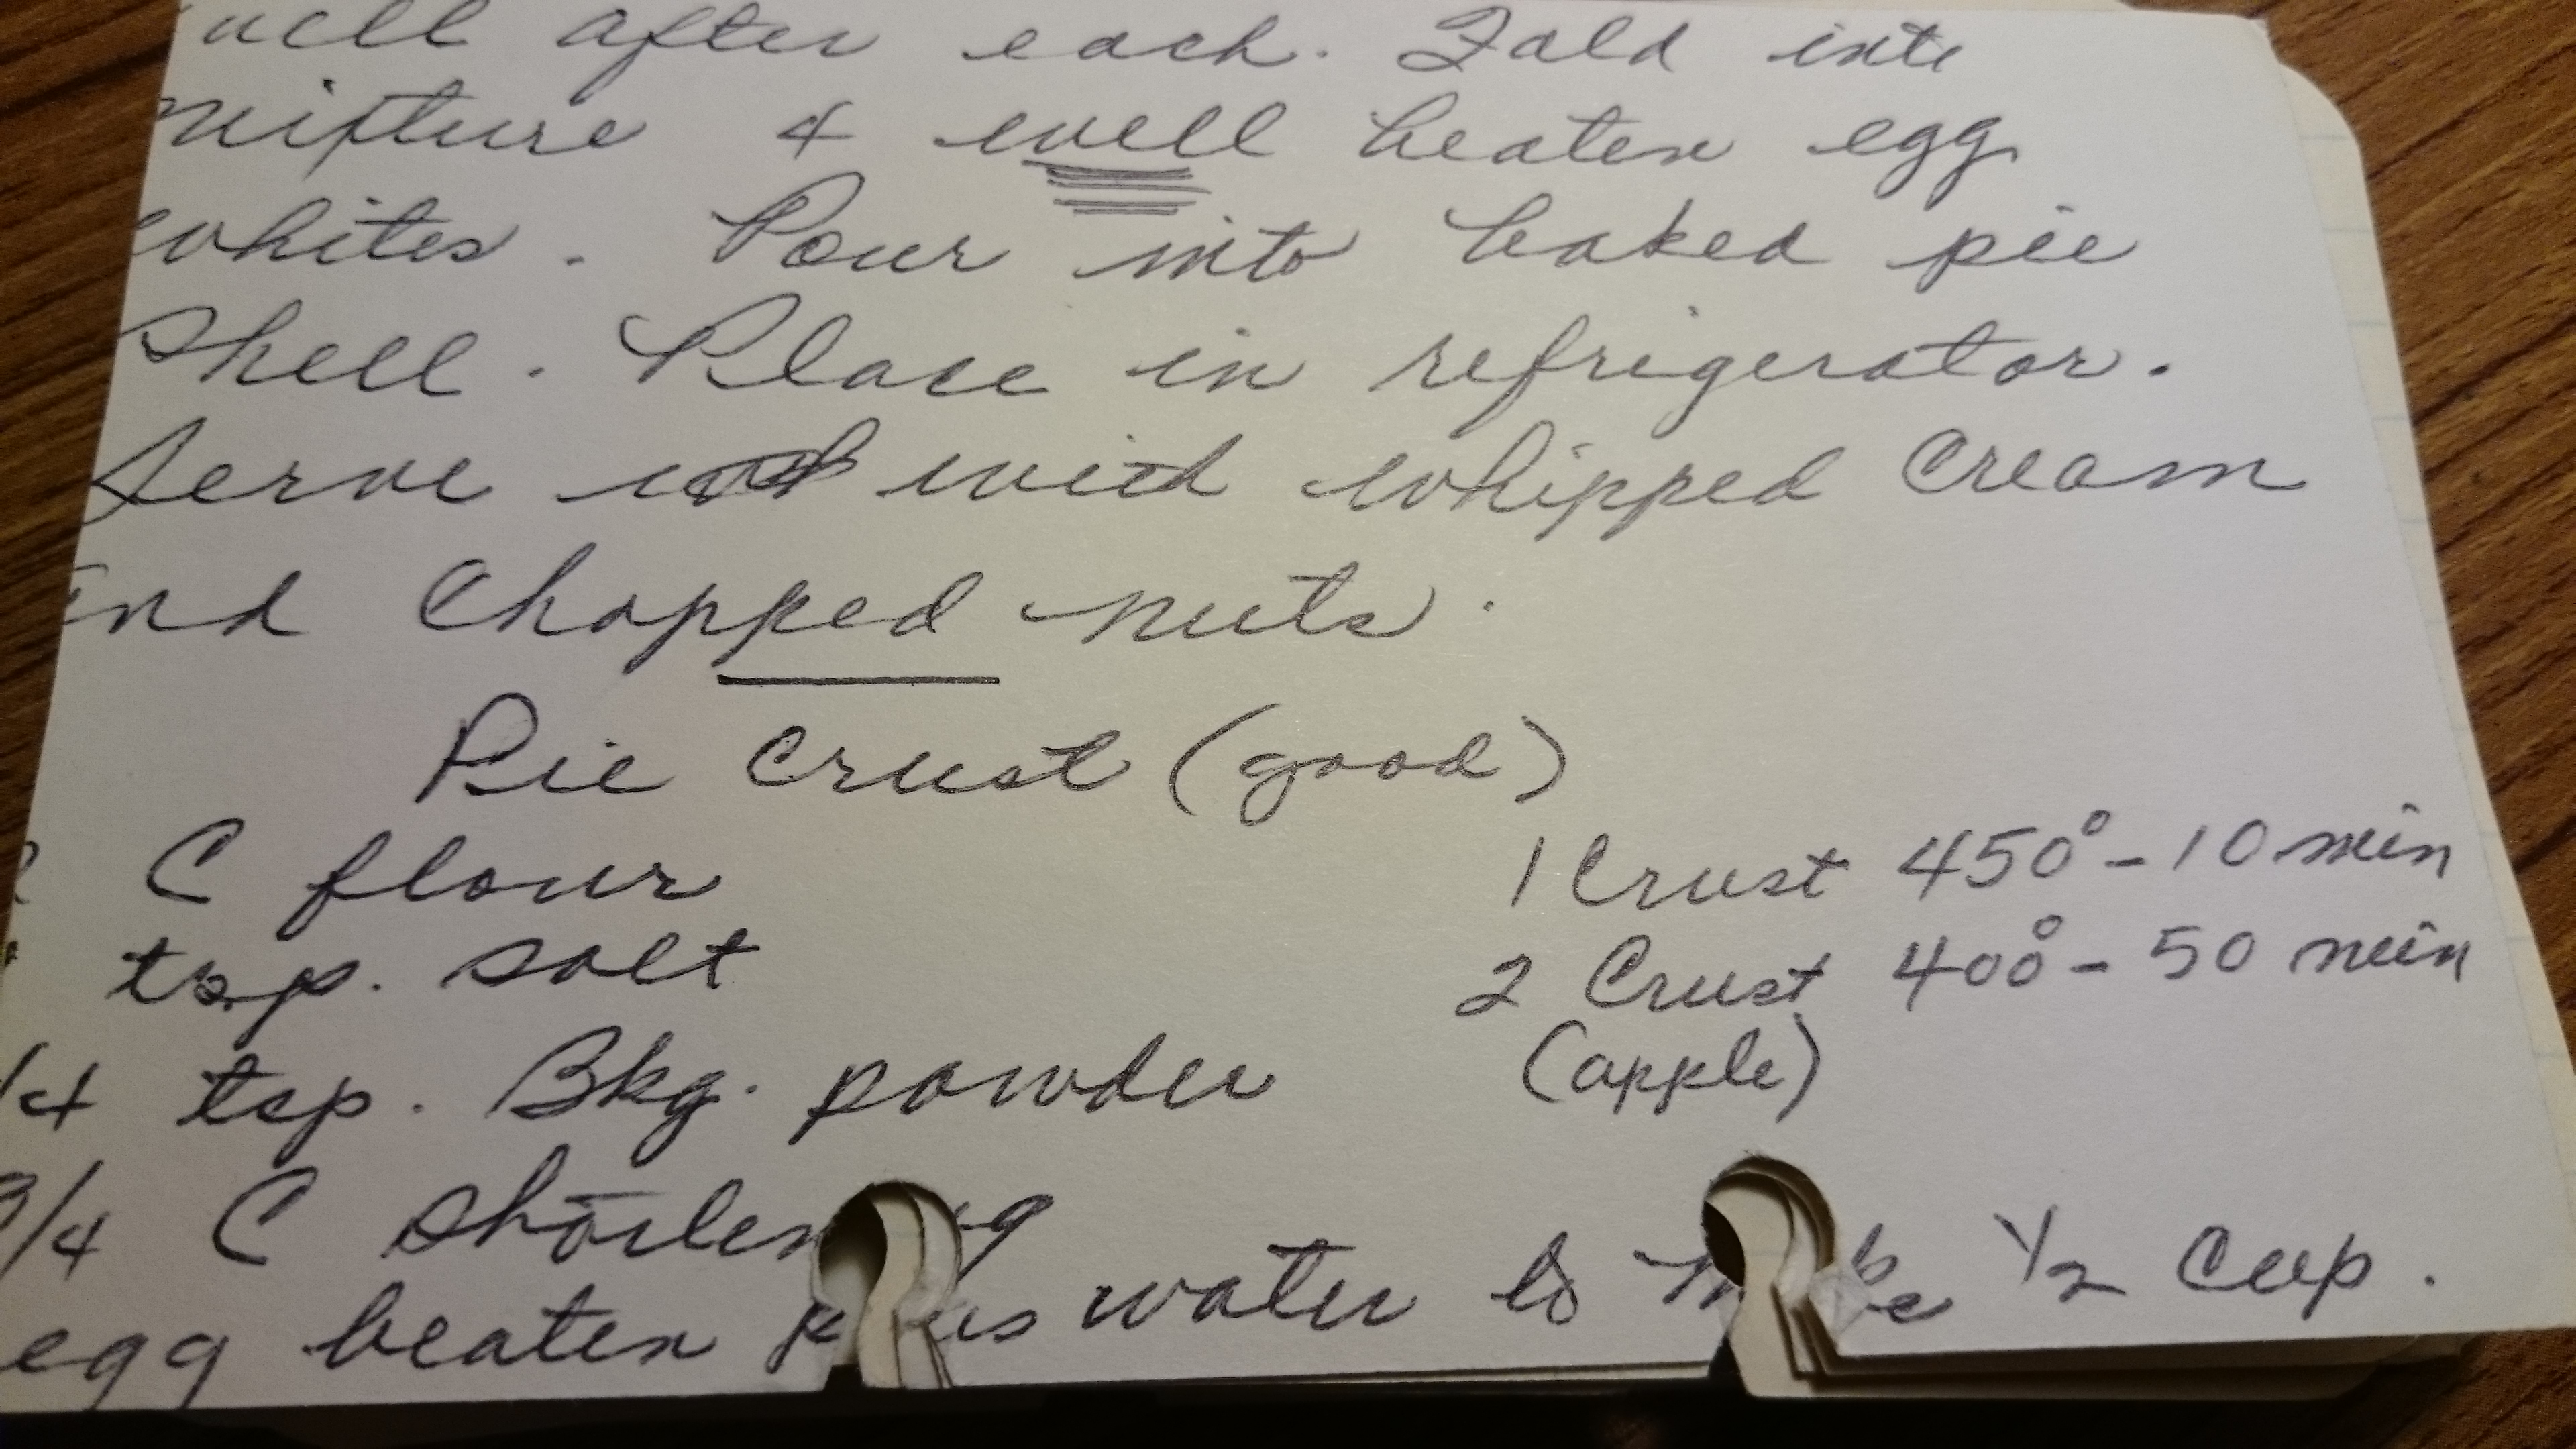 well after each. Fold into
mixture 4 well beaten egg
whites. Pour into baked pie
Shell. Place in refrigerator.
Serve with whipped Cream
and Chopped nuts.
Pie Crust (good)
C flour
tsp. salt
1/4 tsp. Bkg. powder
3/4 C shortening
egg beaten plus water to make 1/2 Cup.
1 Crust 450° - 10 min
2 Crust 400° - 50 min
(apple)